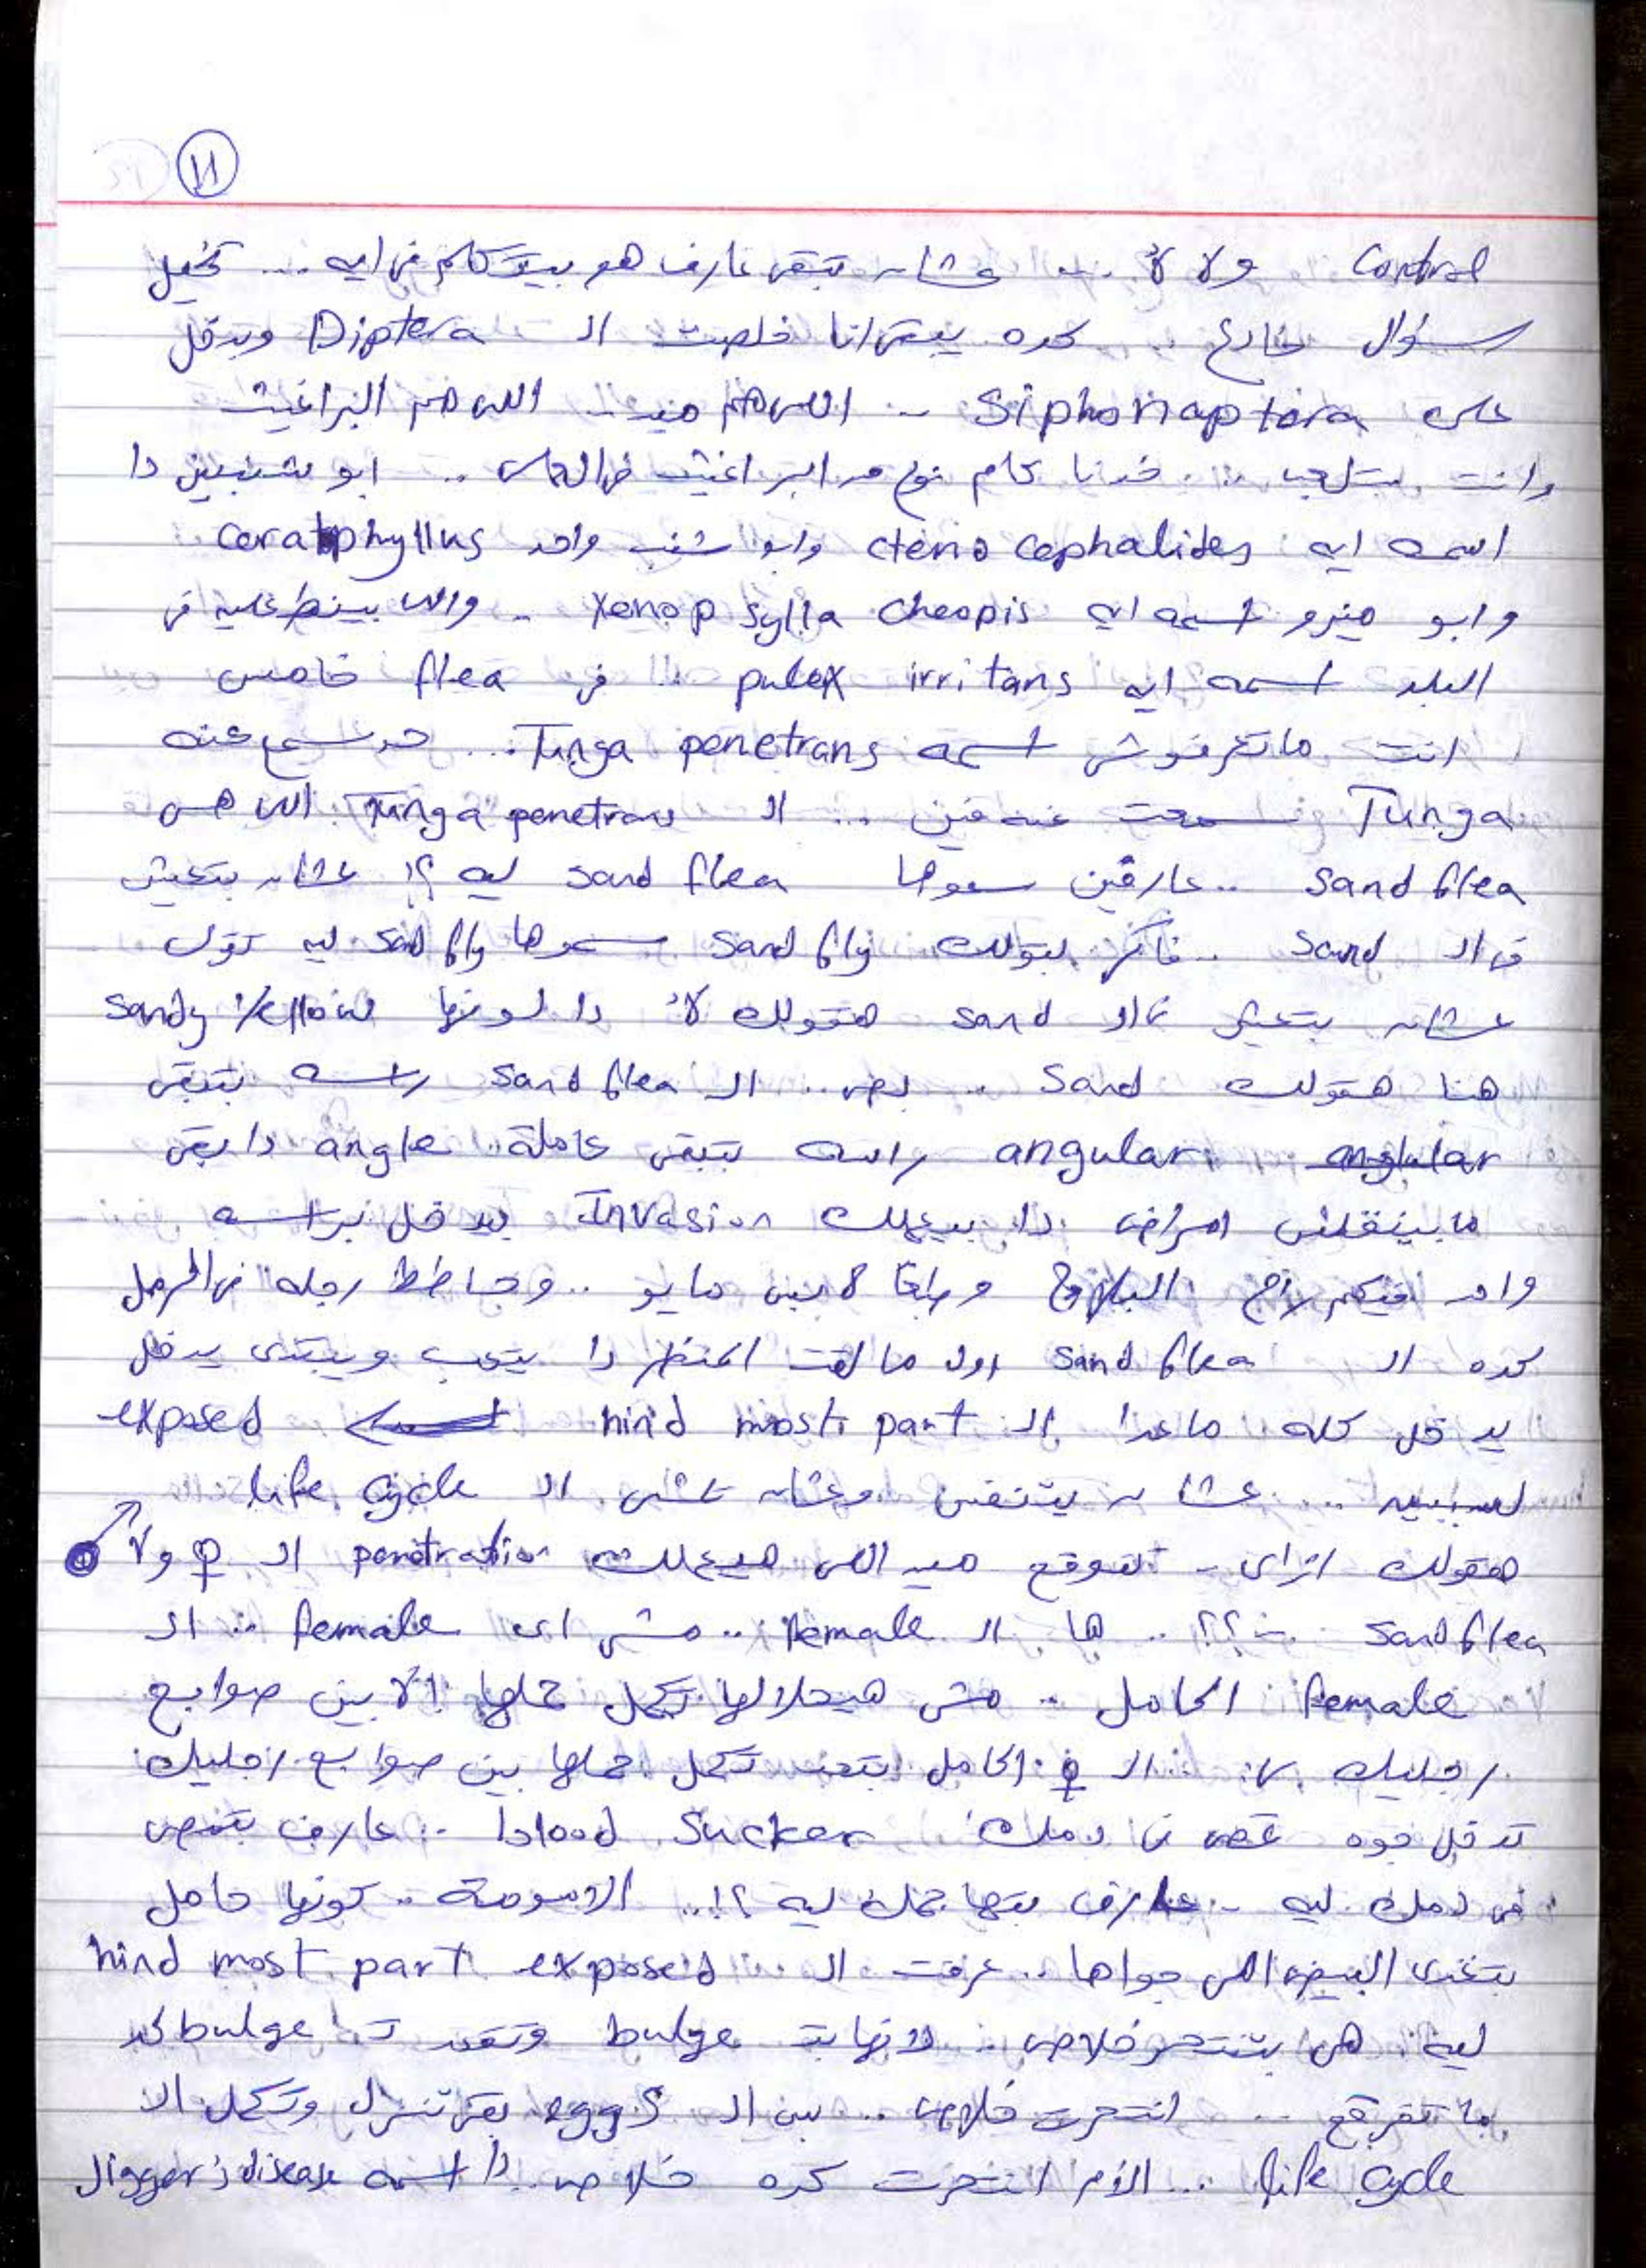 ١١
Control ولا لأ ... عشان تبقى عارف هو بيتكلم فى ايه ... تخيل
سؤال خارج .. كده يبقى انا خلصت الـ Diptera وندخل
على Siphonaptera .. اللى هم مين .. اللى هم البراغيث
وانت بتلعب ... خدنا كام نوع من البراغيث فى العملى .. ابو شنبين دا
اسمه ايه ctenocephalides وابو شنب واحد ceratophyllus
وابو زيرو اسمه ايه Xenopsylla cheopis .. واللى بينط عليه فى
البلد اسمه ايه pulex irritans .. فى flea خامس
انت ماتعرفوش اسمه Tunga penetrans ... حد سمع عنه
Tunga سمعت عنه فين ... الـ Tunga penetrans اللى هى
sand flea .. عارفين سموها sand flea ليه ؟! عشان بتعيش
فى الـ sand .. فاكر بقولك sand fly سموها sand fly ليه تقول
عشان بتعيش فى الـ sand هقولك لأ دا لونها sandy yellow
هنا هقولك sand .. بص .. الـ sand flea راسه بتبقى
angular راسه بتبقى عاملة angle دا يبقى
مابينقلش امراض دا بيعملك Invasion يدخل براسه
واحد فيكم راح البلاج وطبعا لابس مايو .. وحاطط رجله فى الرمل
كده الـ sand flea اول ما لقت المنظر دا يتعب ويبتدى يدخل
يدخل كله ماعدا الـ hind most part exposed
لسببين ... عشان يتنفس وعشان تمشى الـ life cycle
هقولك ازاى .. تتوقع مين اللى هيعملك penetration الـ ♀ ولا ♂
sand flea ..؟؟ .. ها الـ female .. مش اى female .. الـ
female الحامل .. مش هيحلالها تكمل حملها الا بين صوابع
رجليك .. الـ ♀ الحامل بتحب تكمل حملها بين صوابع رجليك
تدخل جوه تمص فى دمك blood sucker .. عارف بتمص
فى دمك ليه .. عارف بتهاجمك ليه ؟!.. الامومة .. كونها حامل
بتغذى البيض اللى جواها .. عرفت الـ hind most part exposed
ليه هى بتنتحر خلاص .. لانها بتـ bulge وتقعد تـ bulge لحد
ما تفرقع .. انتحرت خلاص .. بس الـ eggs بقى تنزل وتكمل الـ
life cycle ... الأم انتحرت كده خلاص .. دا اسمه Jigger's disease